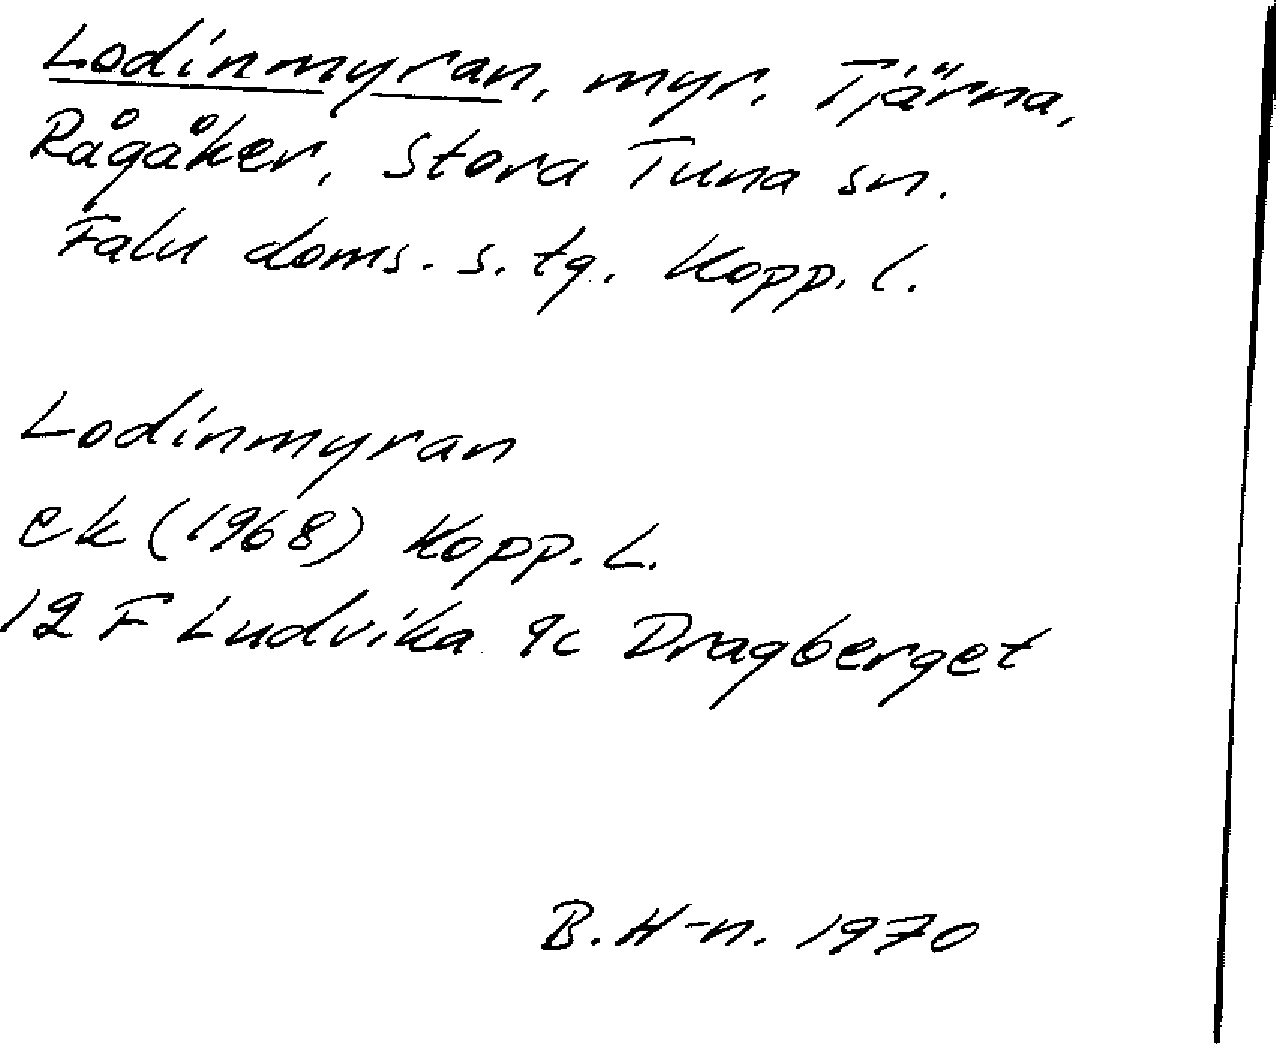 Lodinmyran, myr, Tjärna,
Rågåker, Stora Tuna sn.
Falu doms. s. tg. Kopp. l.
Lodinmyran
ek (1968) Kopp. L.
12 F Ludvika 9c Dragberget
B. H-n. 1970